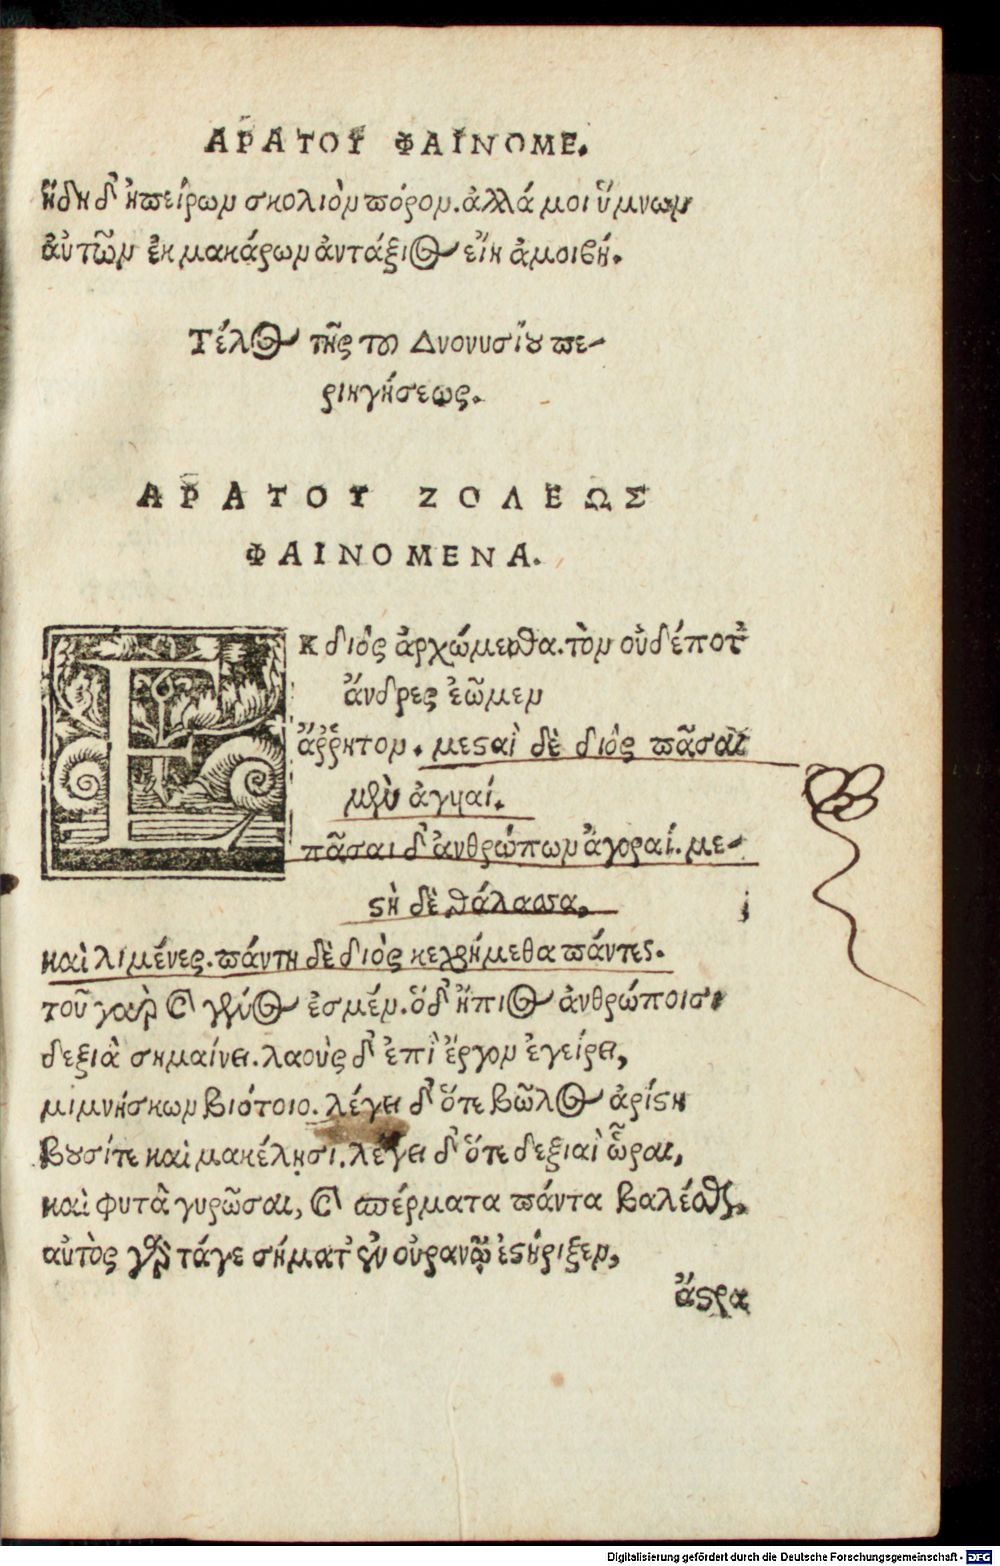 ΑΡΑΤΟΥ ΦΑΙΝΟΜΕ.
ἤδη δ' ἠπείρων σκολιὸν πόρον. ἀλλά μοι ὕμνων
αὐτῶν ἐκ μακάρων ἀντάξιος εἴη ἀμοιβή.
Τέλος τῆς του Διονυσίου πε-
ριηγήσεως.
ΑΡΑΤΟΥ ΣΟΛΕΩΣ
ΦΑΙΝΟΜΕΝΑ.
ΕΚ διὸς ἀρχώμεσθα. τὸν οὐδέποτ'
ἄνδρες ἐῶμεν
ἄῤῥητον. μεσαὶ δὲ διὸς πᾶσαι
μὲν ἀγυιαί.
πᾶσαι δ' ἀνθρώπων ἀγοραί. με-
στὴ δὲ θάλασσα,
καὶ λιμένες. πάντη δὲ διὸς κεχρήμεθα πάντες.
τοῦ γὰρ καὶ γένος ἐσμέν. ὅδ' ἤπιος ἀνθρώποισι
δεξιὰ σημαίνει. λαοὺς δ' ἐπὶ ἔργον ἐγείρει,
μιμνήσκων βιότοιο. λέγει δ' ὅτε βῶλος ἀρίστη
βουσίτε καὶ μακέλησι. λέγει δ' ὅτε δεξιαὶ ὧραι,
καὶ φυτὰ γυρῶσαι, καὶ σπέρματα πάντα βαλέσθαι.
αὐτὸς γὰρ τάγε σήματ' ἐν οὐρανῷ ἐστήριξεν,
ἄστρα
Digitalisierung gefördert durch die Deutsche Forschungsgemeinschaft - DFG